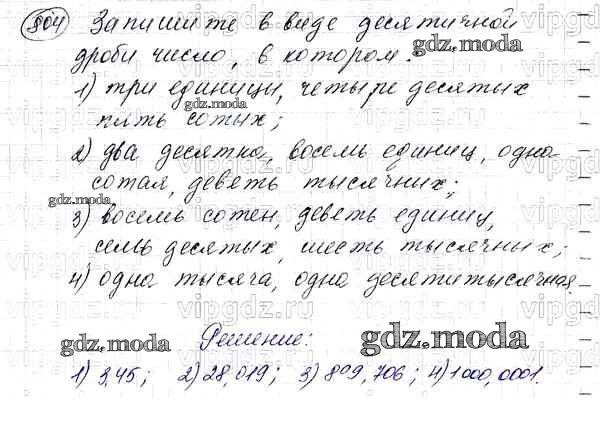 804 Запишите в виде десятичной
дроби число, в котором:
1) три единицы, четыре десятых
пять сотых;
2) два десятка, восемь единиц, одна
сотая, девять тысячных;
3) восемь сотен, девять единиц,
семь десятых, шесть тысячных;
4) одна тысяча, одна десятитысячная.
Решение:
1) 3,45; 2) 28,019; 3) 809,706; 4) 1000,0001.
gdz.moda
gdz.moda
gdz.moda
gdz.moda
gdz.moda
vipgdz